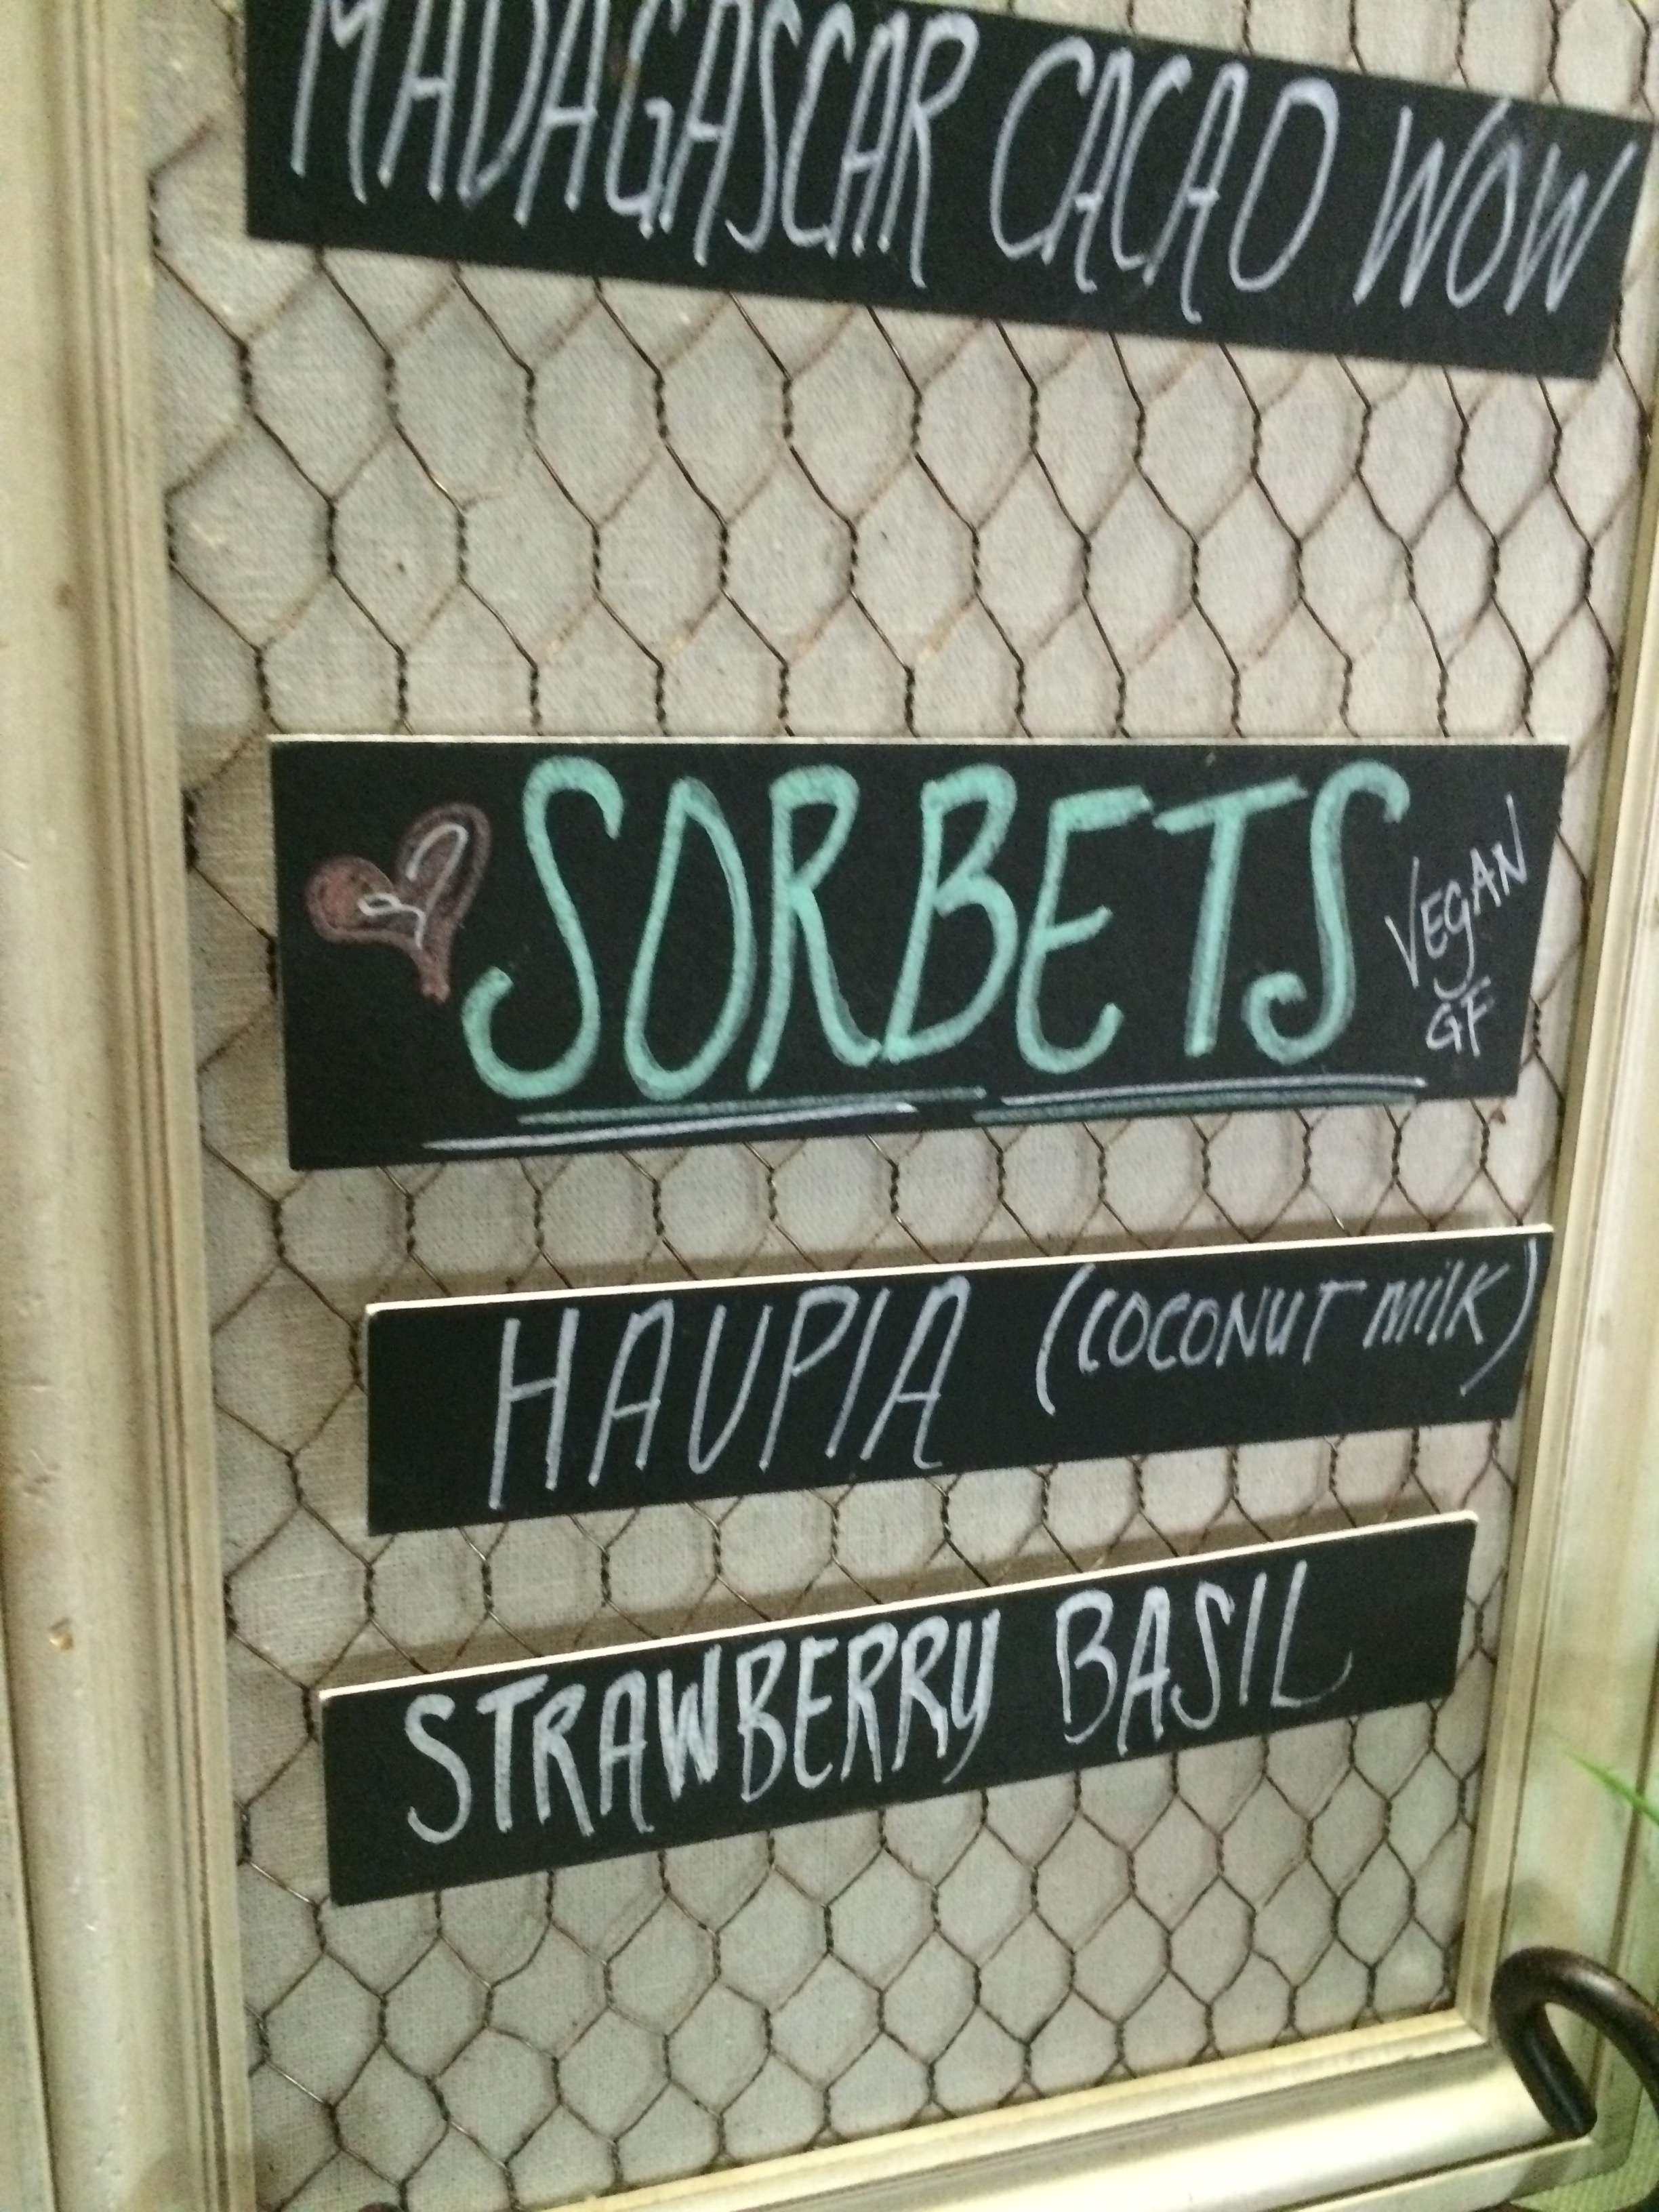 MADAGASCAR CACAO WOW
SORBETS
VEGAN
GF
HAUPIA (COCONUT MILK)
STRAWBERRY BASIL